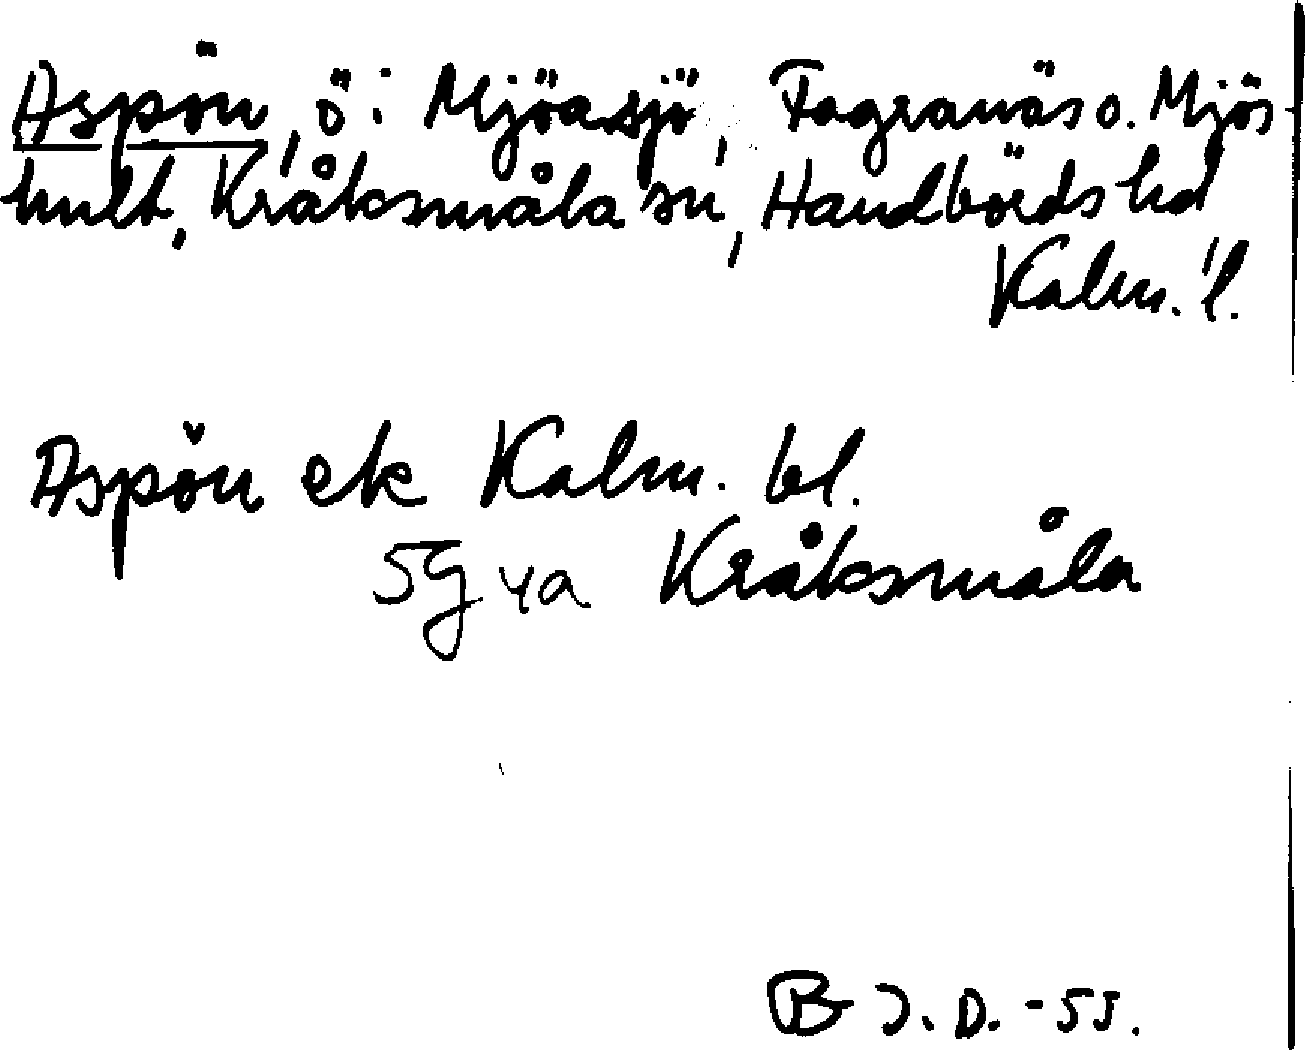 Aspön, ö i Mjöasjö, Fagranäs o. Mjös-
hult, Kråksmåla sn, Handbörds hd
Kalm. l.
Aspön ek Kalm. bl.
5G 4a Kråksmåla
B J. D. -55.